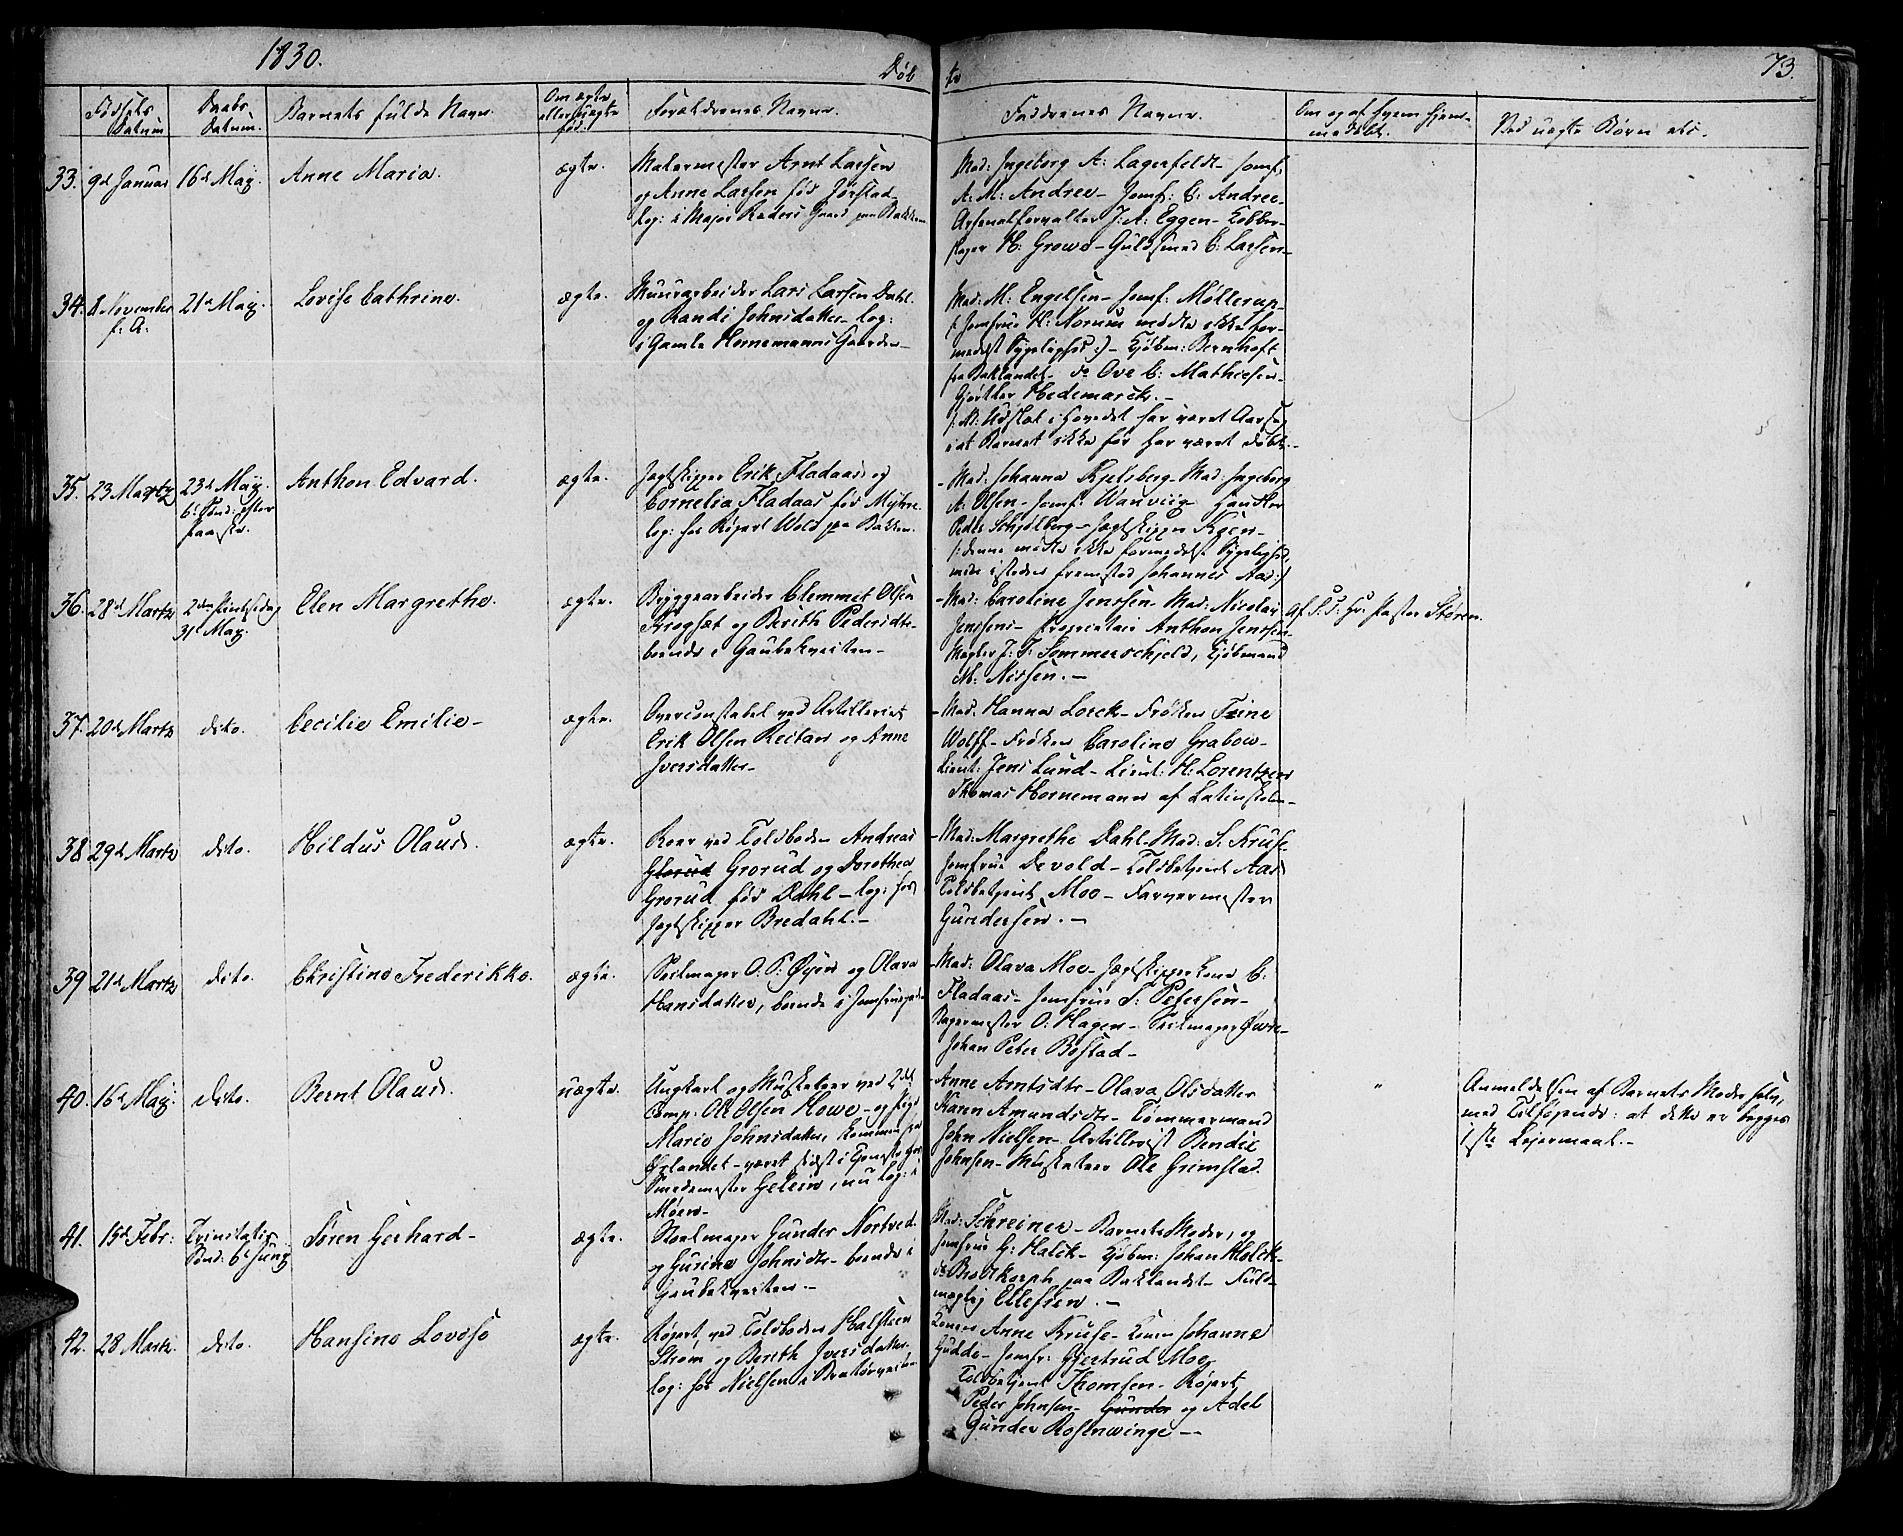 1830.
Døb
te
73.
Fødsels Datum
Daabs Datum.
Barnets fulde Navn.
Om ægte eller uægte fød.
Forældrenes Navne.
Faddrenes Navne.
Om og af hvem hjemmedøbt.
Ved uægte Børn etc.
33. 9d Januar 16d Maij. Anne Maria. ægte.
Malermester Arnt Larsen
og Anne Larsen fød Jørstad
log: i Major Raders Gaard paa Bakken
Mad: Ingeborg A: Lagerfeldt - Jomf:
A: M: Andree - Jomf: C: Andree -
Arsenalforvalter J: A: Eggen - Kobber-
slager H: Growe - Guldsmed C: Larsen -
34. 8 November f: A: 21d Maij. Lovise Cathrine. ægte.
Muurarbeider Lars Larsen Dahl.
og Randi Johnsdatter - log:
i Gamle Hornemanns Gaarden -
Mad: M: Engelsen - Jomf: Møllerup
/: Jomfrue K: Norum mødte ikke for-
medelst Sygelighed :/ - Kjøbm: Bernhoft
paa Baklandet - do Ove C: Mathiesen -
Gjørtler Hedemarck. -
/: NB: Udslæt i Hovedet har været Aarsag
i at Barnet ikke før har været døbt. -
35. 23 Martz 23d Maij. 6: Sønd: efter Paaske. Anthon Edvard. ægte.
Jagtskipper Erik Fladaas og
Cornelia Fladaas fød Myhre
log: hos Røjert Wold paa Bakken.
- Mad: Johanna Kjelsberg - Mad: Ingeborg
A: Olsen - Jomf: Wanviig
Peder Schjølberg - Jagtskipper
/: denne mødte ikke formedelst Sygelighed,
men isteden fremstod Johannes Aas :/
36. 28d Martz 2den Pintsedag 31d Maij. Elen Margrethe. ægte.
Bryggearbeider Clemmet Olsen
Krogsæt og Berith Pedersdtr
boende i Gaubekveiten -
- Mad: Caroline Jenssen - Mad: Nicolai
Jenssens - Proprietair Anthon Jenssen -
Megler J: F: Sommerschjeld, Kjøbmand
M: Nissen. -
Af S: T: Hr: Pastor Støren.
37. 20d Martz dito. Cecilie Emilie - ægte.
Overconstabel ved Artilleriet
Erik Olsen Reitan og Anne
Iversdatter -
- Mad: Hanna Lorck - Frøken Trine
Wolff - Frøken Caroline Grabow -
Lieut: Jens Lund - Lieut: H: Lorentzen
Thomas Hornemann af Latinskolen -
38 29d Martz dito. Hildus Olaus. ægte.
Roer ved Toldboden Andreas
Glorud Grorud og Dorothea
Grorud fød Dahl - log: hos
Jagtskipper Bredahl. -
- Mad: Margrethe Dahl - Mad: S: Kruse
Jomfrue Devold - Toldbetjent Aas
Toldbetjent Moe - Farvermester
Gundersen. -
39 21d Martz dito. Christine Frederikke. ægte.
Seilmager O: P: Øyen og Olava
Hansdatter, boende i
- Mad: Olava Moe - Jagtskipper Kone C:
Fladaas - Jomfrue S: Petersen -
Bagermester O: Hagen - Seilmager
Johan Peter Bostad -
40. 16d Maij. dito. Bernt Olaus. uægte.
Ungkarl og Musketeer ved 2det
Comp: Ole Olsen Howe - og Pige
Marie Johnsdatter, kommen fra
Ørlandet - været sidst i Tjeneste hos
Smedemester Gelein, nu log: i
Møen -
- Anne Arntsdtr - Olava Olsdatter
Karen Amundsdtr - Tømmermand
John Nielsen - Artillerist Bendix
Johnsen - Musketeer Ole Grimstad.
Anmeldelsen af Barnets Moder selv,
med Tilføjende: at dette er begges
1ste Lejermaal. -
41. 15d Febr: Trinitatis Sønd: 6d Junij Søren Gerhard - ægte.
Stoelmager Gunder Nortved
og Gurine Johnsdtr - boende i
Gaubekveiten. -
Mad: Schreiner - Barnets Moder, og
Jomfrue G: Halck - Kjøbm: Johan Halck -
do Brodtkorph paa Baklandet - Fuld-
mægtig Ellefsen. -
42. 28 Martz. dito. Hansine Lovise ægte.
Røjert ved Toldboden Halsteen
Strøm og Berith Iversdatter
log: hos Nielsen i Bratørveiten
Konen Anne Kruse - Konen Johanne
Gudde - Jomfr: Gjertrud Moe
Toldbetjent Thomsen - Røjert
Peder Johnsen - Gunder og Adel
Gunder Rosenwinge -